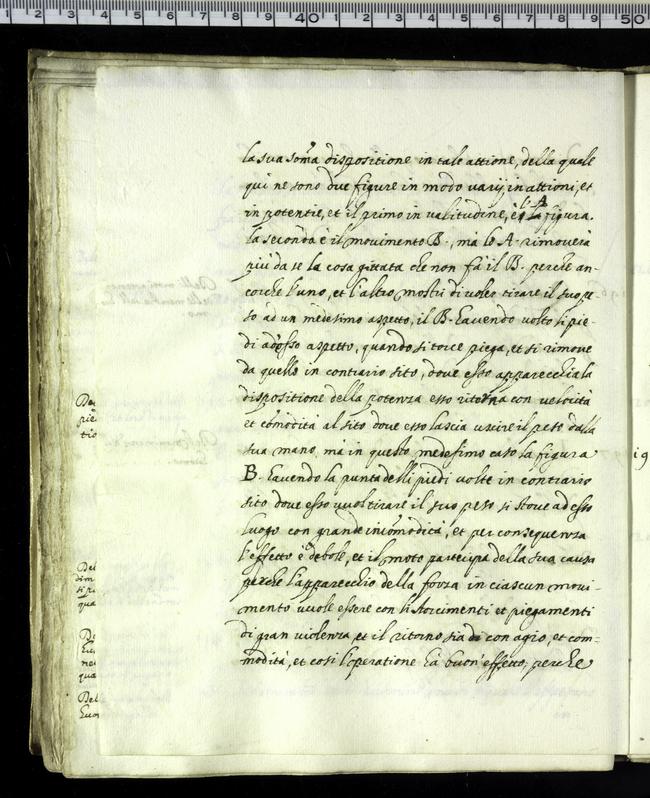 40 41 42 43 44 45 46 47 48 49 50
la sua som̃a dispositione in tale attione, della quale
qui ne sono due figure in modo varij in attioni, et
in potentie, et il primo in valitudine, è la figura A.
la seconda è il movimento B., mà lo A. rimoverà
più da se la cosa gittata che non fà il B. perche an-
corche l'uno, et l'altro mostri di voler tirare il suo pe-
so ad un medesimo aspetto, il B. havendo volto li pie-
di ad esso aspetto, quando si torce piega, et si rimove
da quello in contrario sito, dove esso apparecchia la
dispositione della potenza esso ritorna con velocità
et com̃odità al sito dove esso lascia uscire il peso dalla
sua mano. mà in questo medesimo caso la figura
B. havendo la punta delli piedi volte in contrario
sito dove esso vuol tirare il suo peso si storce ad esso
luogo con grande incom̃odità, et per consequenza
l'effetto è debole, et il moto partecipa della sua causa
perche l'apparecchio della forza in ciascun movi-
mento vuole essere con li storcimenti et piegamenti
di gran violenza, et il ritorno sia con agio, et com-
modità, et così l'operatione hà buon'effetto; perche
De
pie
tio
Del
sim
si pi
qua
D
hu
ne
qua
Del
huo
19